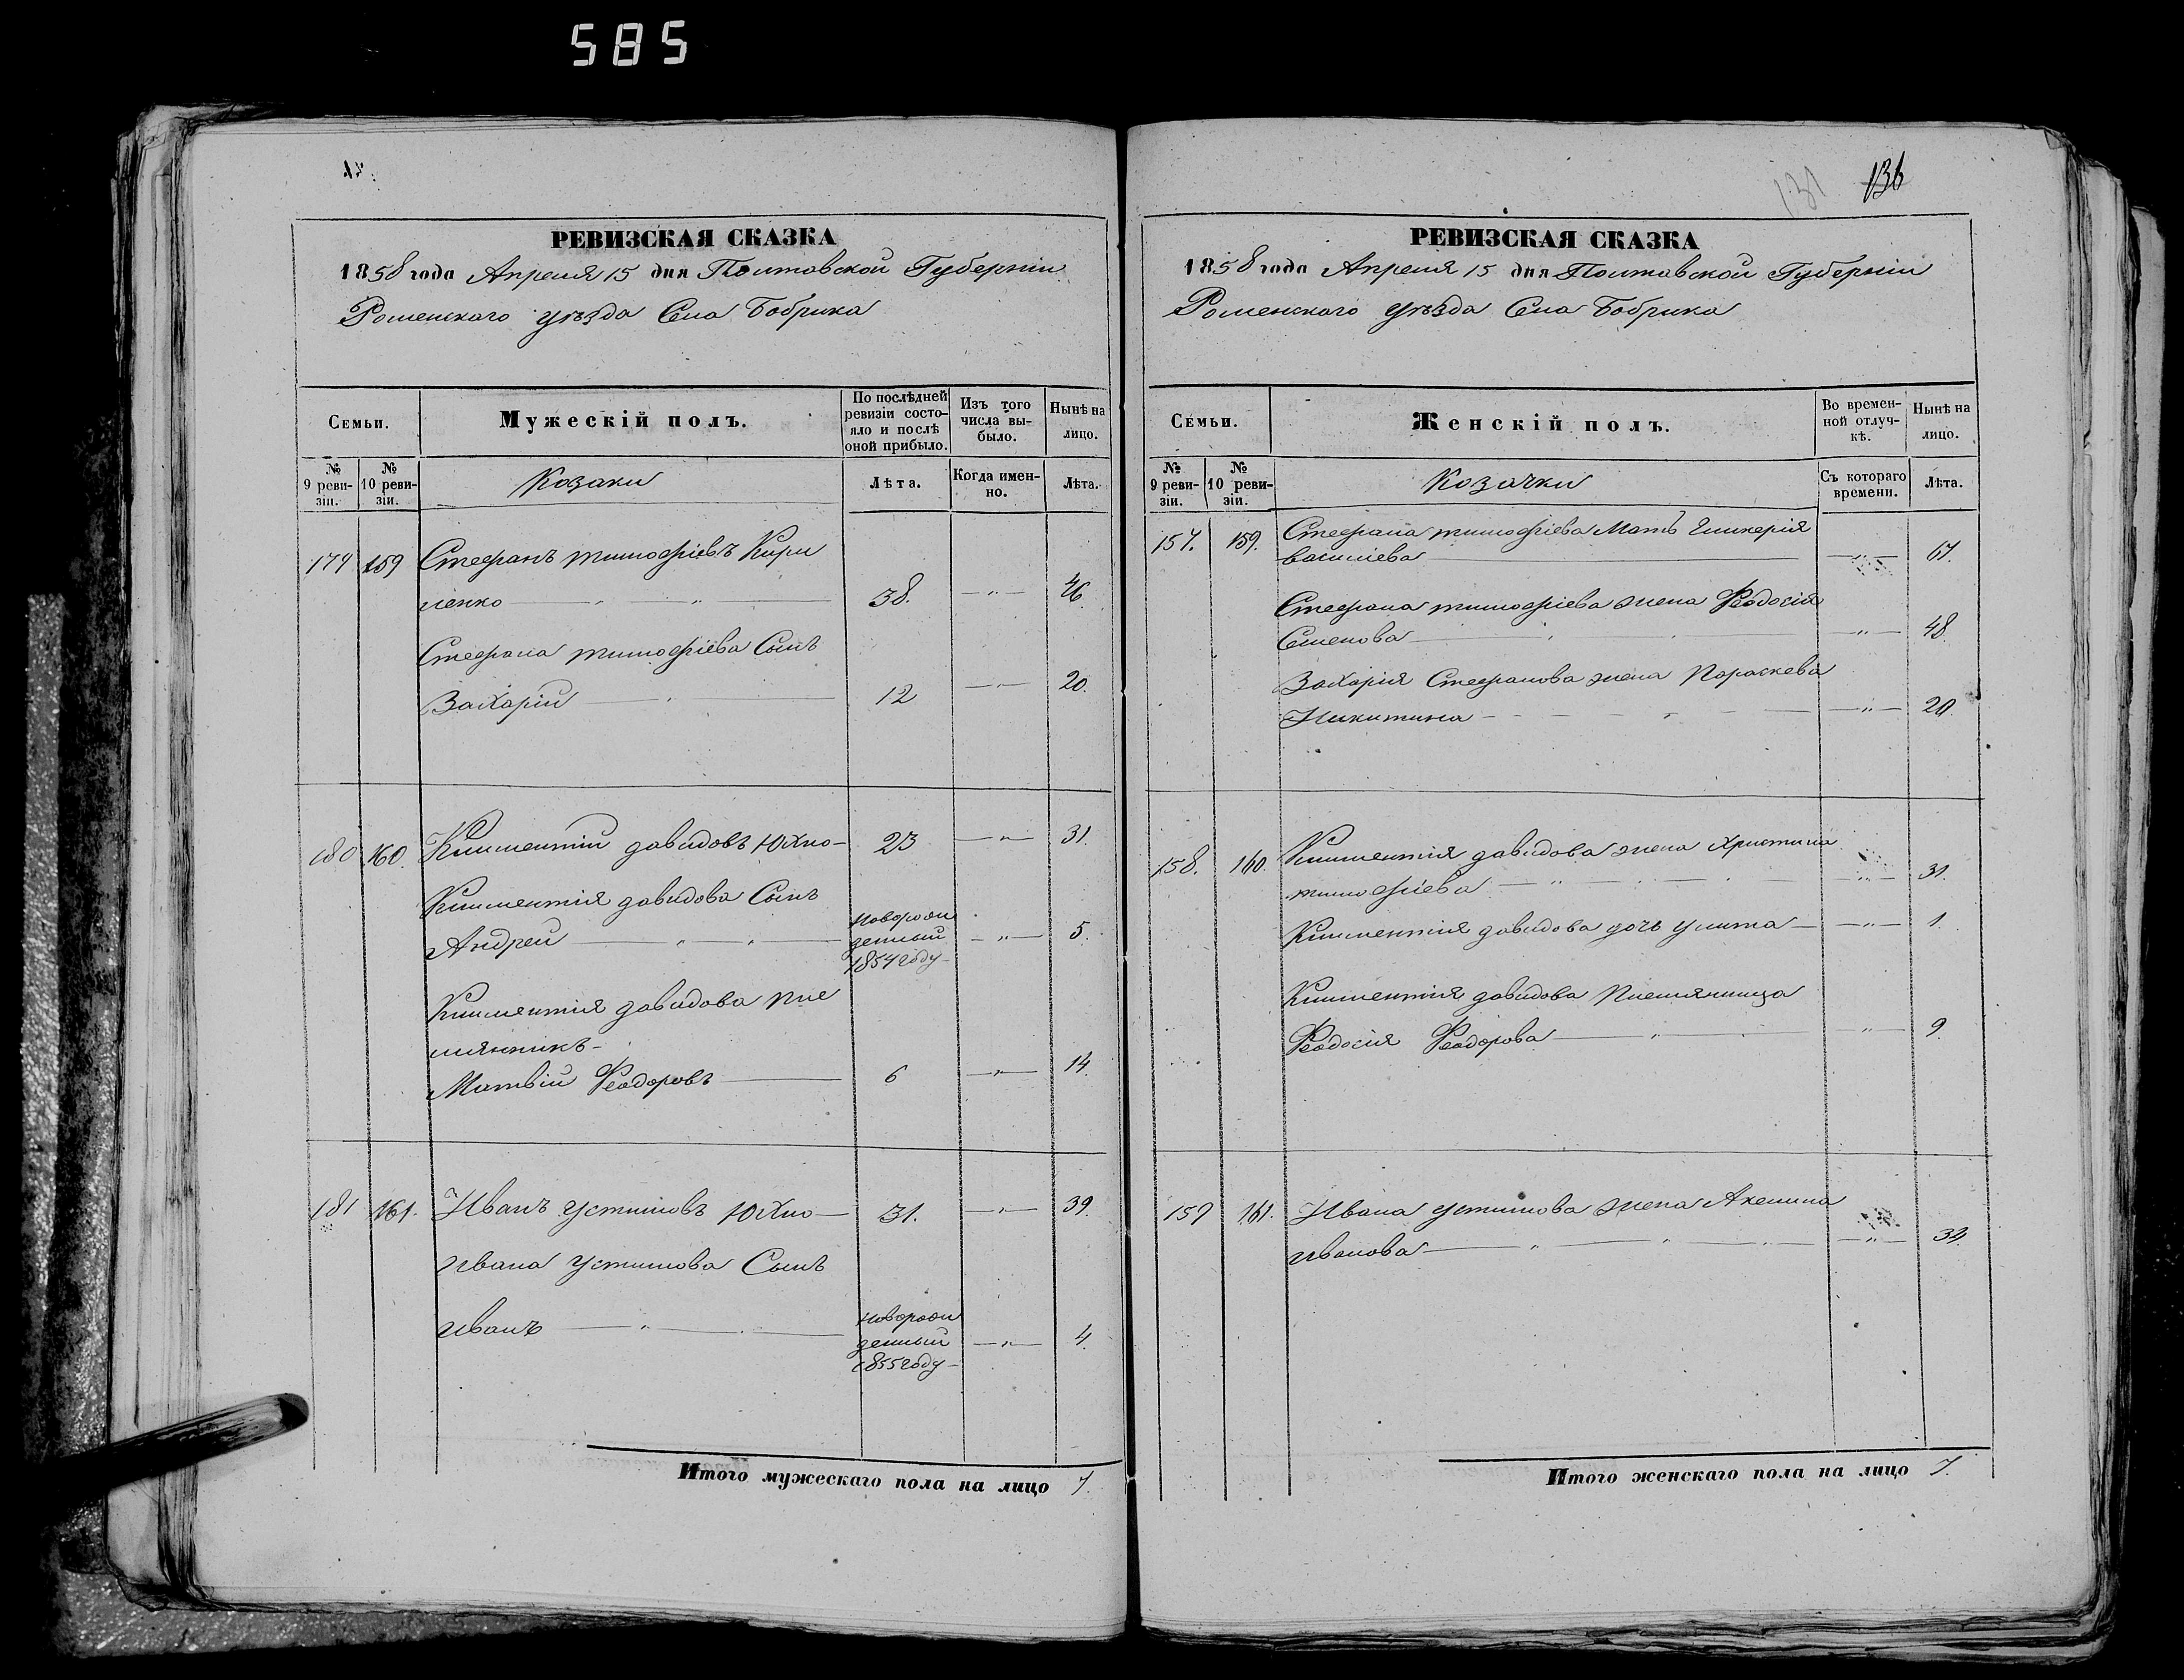 585
136
131
РЕВИЗСКАЯ СКАЗКА
1858 года Апреля 15 дня Полтавской Губерніи
Роменскаго уѣзда Села Бобрика
Семьи.
Мужескій полъ.
По послѣдней
ревизіи состо-
яло и послѣ
оной прибыло.
Изъ того
числа вы-
было.
Нынѣ на
лицо.
№
9 реви-
зіи.
№
10 реви-
зіи.
Козаки
Лѣта.
Когда имен-
но.
Лѣта.
179 159 Стефанъ тимофіевъ Кири
ленко 38. — „ — 46
Стефана тимофіева Сынъ
Захарій 12 — „ — 20.
180 160. Климентій давидовъ Юхно — 23 — „ — 31.
Климентія давидова Сынъ
Андрей — новорож
денный
1854 году — „ — 5.
Климентія давидова пле
мянникъ —
Матвій Феодоровъ — 6 — „ — 14.
181 161. Иванъ устимовъ Юхно — 31. — „ — 39.
ивана устимова Сынъ
иванъ — новорож
денный
1855 году — „ — 4.
Итого мужескаго пола на лицо 7.
РЕВИЗСКАЯ СКАЗКА
1858 года Апреля 15 дня Полтавской Губерніи
Роменскаго уѣзда Села Бобрика
Семьи.
Женскій полъ.
Во времен-
ной отлуч-
кѣ.
Нынѣ на
лицо.
№
9 реви-
зіи.
№
10 реви-
зіи.
Козачки
Съ котораго
времени.
Лѣта.
157. 159. Стефана тимофіева Мать Гликерія
васильева — „ — 67.
Стефана тимофіева жена Феодосія
Семенова — „ — 48
Захарія Стефанова жена Параскева
Никитина — „ — 20.
158. 160. Климентія давидова жена Христина
тимофіева — „ — 31.
Климентія давидова дочь улита — „ — 1.
Климентія давидова племянница
Феодосія Феодорова — „ — 9.
159 161. Ивана устимова жена Акелина
иванова — „ — 39.
Итого женскаго пола на лицо 7.